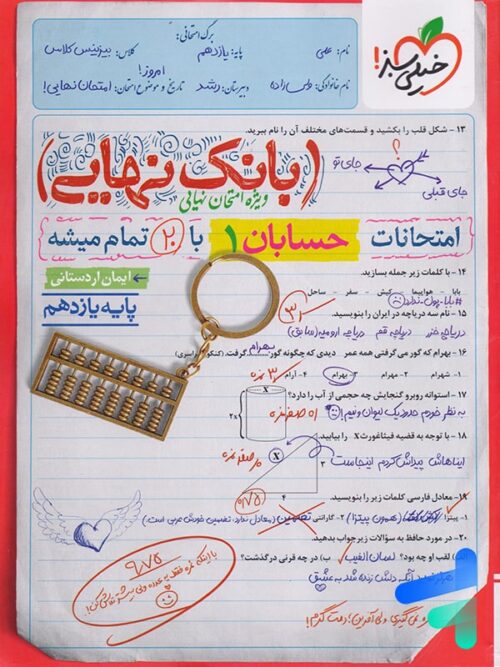 برگ امتحانی:
نام: علی
پایه: یازدهم
کلاس: بیزینس کلاس
امروز!
نام خانوادگی:
دبیرستان: رشد
تاریخ و موضوع امتحان: امتحان نهایی!
خیلی سبز!
۱۳ - شکل قلب را بکشید و قسمت‌های مختلف آن را نام ببرید.
؟
جای تو
جای قبلی
(بانک نهایی)
ویژه امتحان نهایی
امتحانات حسابان ۱ با ۲۰ تمام میشه
۱۴ - با کلمات زیر جمله بسازید.
بابا - هواپیما - کیش - سفر - ساحل
#بابا_پول_ندارد
۳/۱
ایمان اردستانی
پایه یازدهم
۱۵ - نام سه دریاچه در ایران را بنویسید.
دریاچه خزر دریاچه قم دریاچه ارومیه (سابق)
بهرام
۱۶ - بهرام که گور می‌گرفتی همه عمر دیدی که چگونه گور گرفت.
۱- شهرام ۲- مهرام ۳- بهرام ۴- آرام
۱۷ - استوانه روبرو گنجایش چه حجمی از آب را دارد؟
به نظر خودم حدود یک لیوان و نیم!
X
2X
۱۸ - با توجه به قضیه فیثاغورث X را بیابید.
ایناهاش پیداش کردم اینجاست
X
۳
۴
۱۹ - معادل فارسی کلمات زیر را بنویسید.
۱- پیتزا (همون پیتزا) ۲- گارانتی تضمین (معادل ندارد، تضمین خودش عربی است)
۲۰ - در مورد حافظ به سؤالات زیر جواب بدهید.
لقب او چه بود؟ لسان الغیب ب) در چه قرنی درگذشت؟
دلش زنده شد به عشق
۹/۷۵